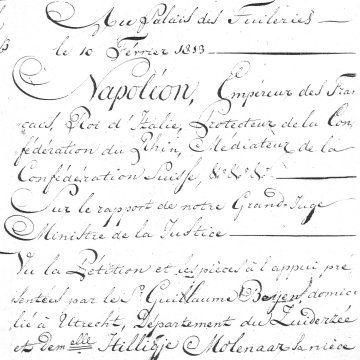 Au Palais des Tuileries
le 10 Février 1813
Napoléon, Empéreur des Fran
çais, Roi d'Italie, Protecteur de la Con
fédération du Rhin, Médiateur de la
Confédération Suisse, &c &c &c.
Sur le rapport de notre Grand-Juge
Ministre de la Justice
Vu la Pétition et les pièces à l'appui pré
sentées par le Sr. Guillaume Beyen, domici
lié à Utrecht, Département du Zuiderzee
et demelle Hilligje Molenaar sa nièce